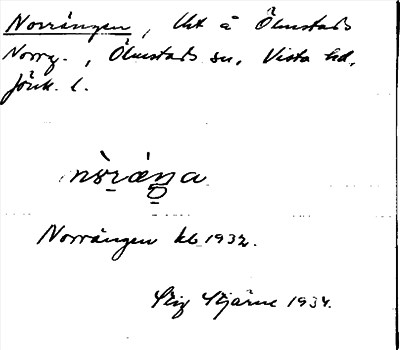 Norrängen, Uht å Ölmstads
Norrg., Ölmstads sn, Vista hd,
Jönk. l.
Norrängen kb 1932.
Stig Stjärne 1934.